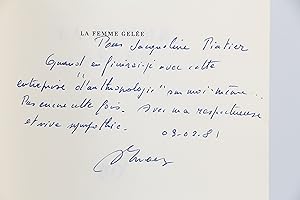 LA FEMME GELÉE
Pour Jacqueline Piatier
Quand en finirai-je avec cette
entreprise "d'anthropologie" sur moi-même...
Pas encore cette fois. Avec ma respectueuse
et vive sympathie.
09-02-81